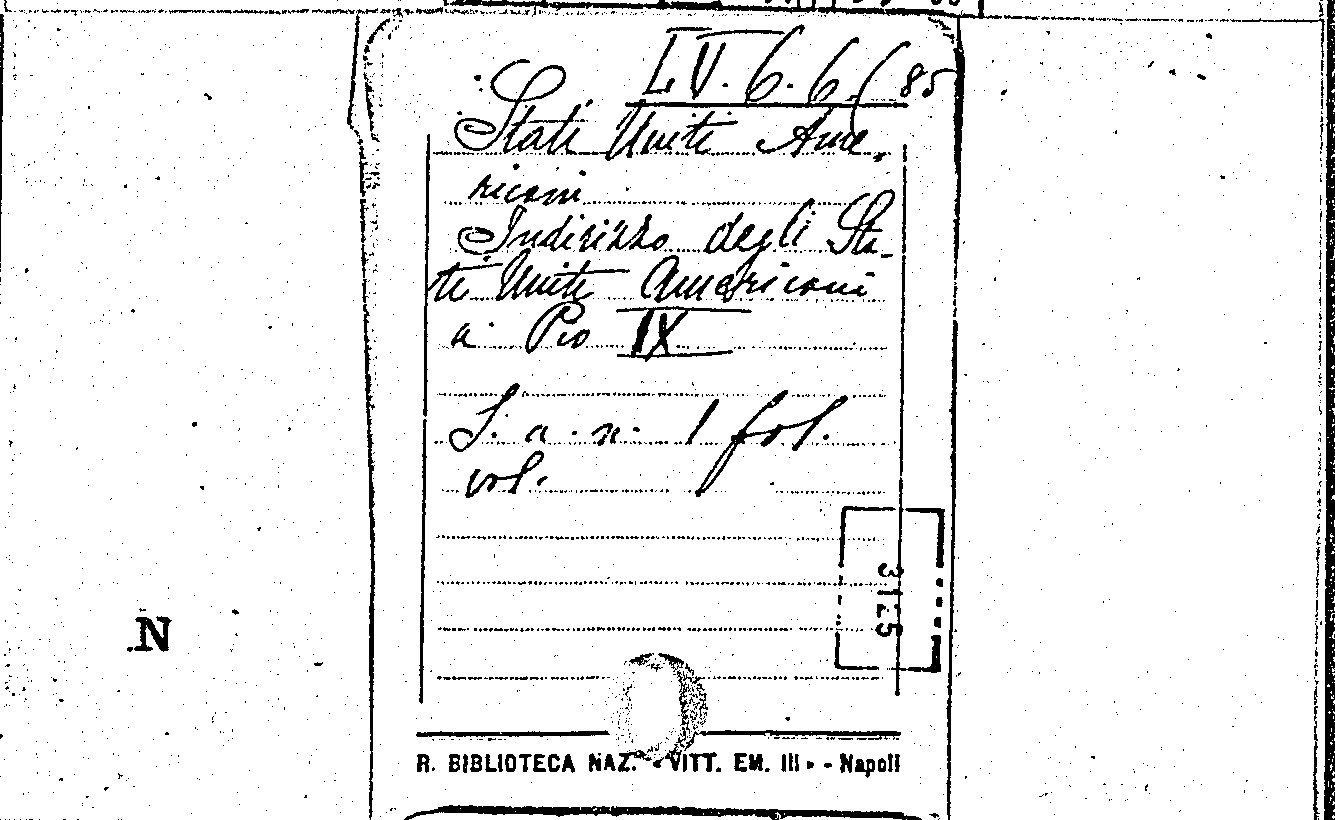 LV. 6. 6 (85
Stati Uniti Ame-
ricani
Indirizzo degli Sta-
ti Uniti Americani
a Pio IX
S. a. n. 1 fol.
vol.
3125
N
R. BIBLIOTECA NAZ. « VITT. EM. III » - Napoli